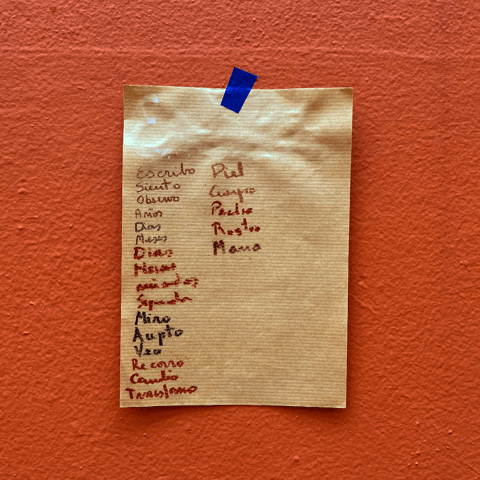 Escribo
Siento
Observo
Años
Dias
Meses
Dias
Horas
minutos
Segundos
Miro
Acepto
Veo
Recorro
Cambio
Transformo
Piel
Cuerpo
Pecho
Rostro
Mano